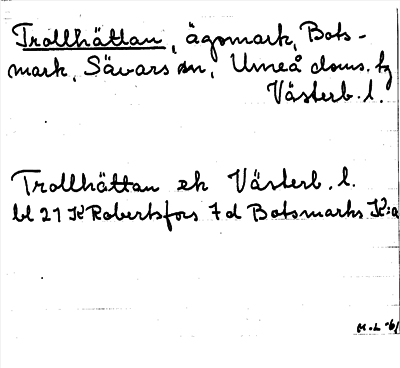 Trollhättan, ägomark, Bots-
mark, Sävars sn, Umeå doms. tg
Västerb. l.
Trollhättan ek Västerb. l.
bl 21 K Robertsfors 7 d Botsmarks K:a
H.L -61